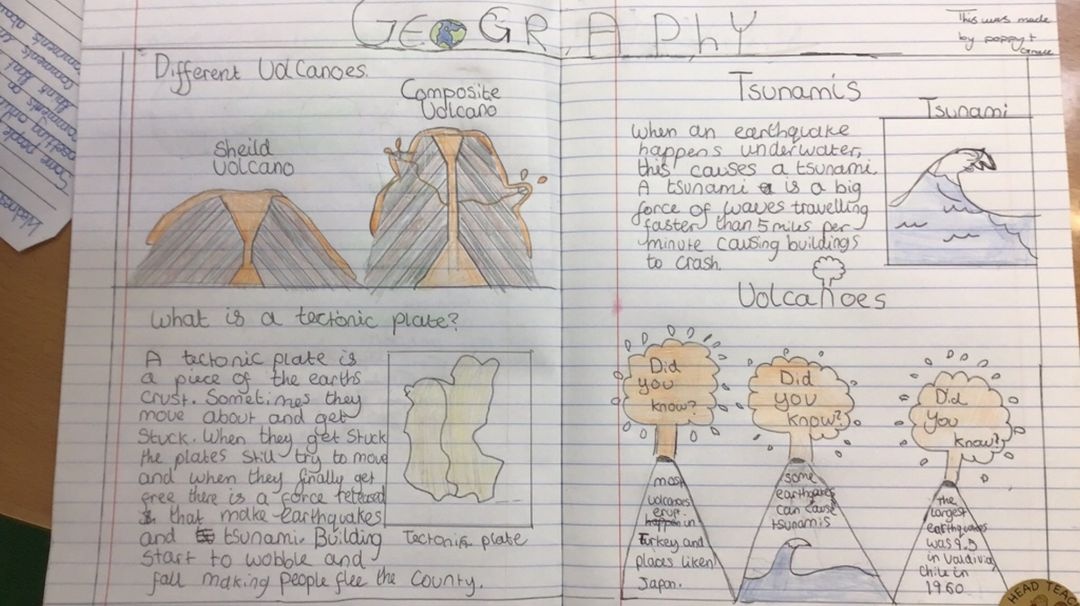 GEOGRAPHY
This was made
by poppy +
Different Volcanoes.
Sheild
Volcano
Composite
Volcano
What is a tectonic plate?
A tectonic plate is
a piece of the earths
crust. Sometimes they
move about and get
stuck. When they get stuck
the plates still try to move
and when they finally get
free there is a force released
that make earthquakes
and tsunami. Building
start to wobble and
fall making people flee the county.
Tectonic plate
Tsunamis
When an earthquake
happens underwater,
this causes a tsunami.
A tsunami is a big
force of waves travelling
faster than 5 mius per
minute causing buildings
to crash.
Tsunami
Volcanoes
Did
you
know?
most
volcanoes
erup
happen in
Turkey and
places liken
Japan.
Did
you
know?
some
earthquakes
can cause
tsunamis
Did
you
know?
the
largest
earthquakes
was 9.5
in Valdivia
Chile in
1960
HEAD TEAC